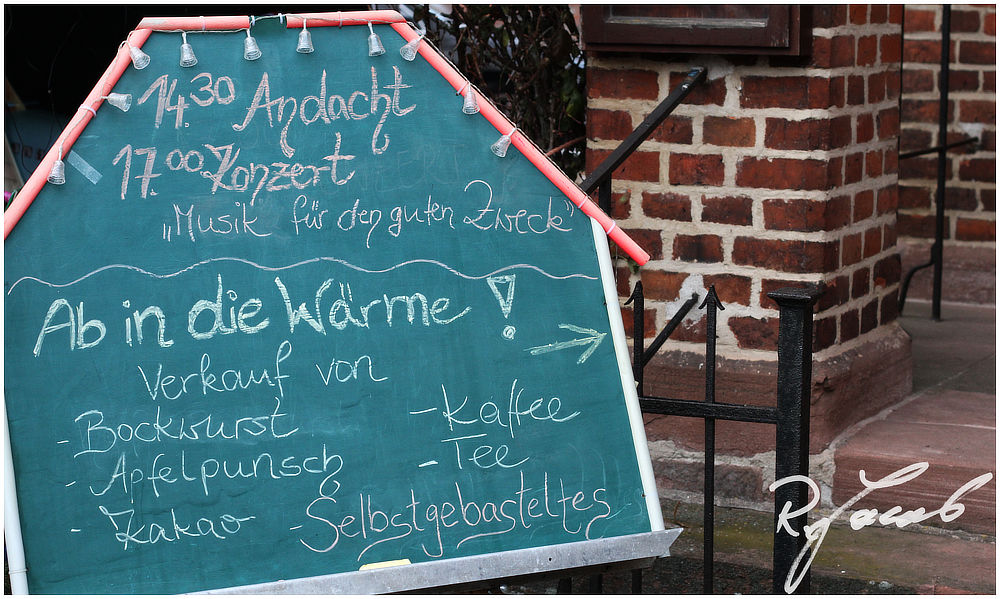 14.30 Andacht
17.00 Konzert
„Musik für den guten Zweck"
Ab in die Wärme!
Verkauf von
- Bockwurst
- Apfelpunsch
- Kakao
- Kaffee
- Tee
- Selbstgebasteltes